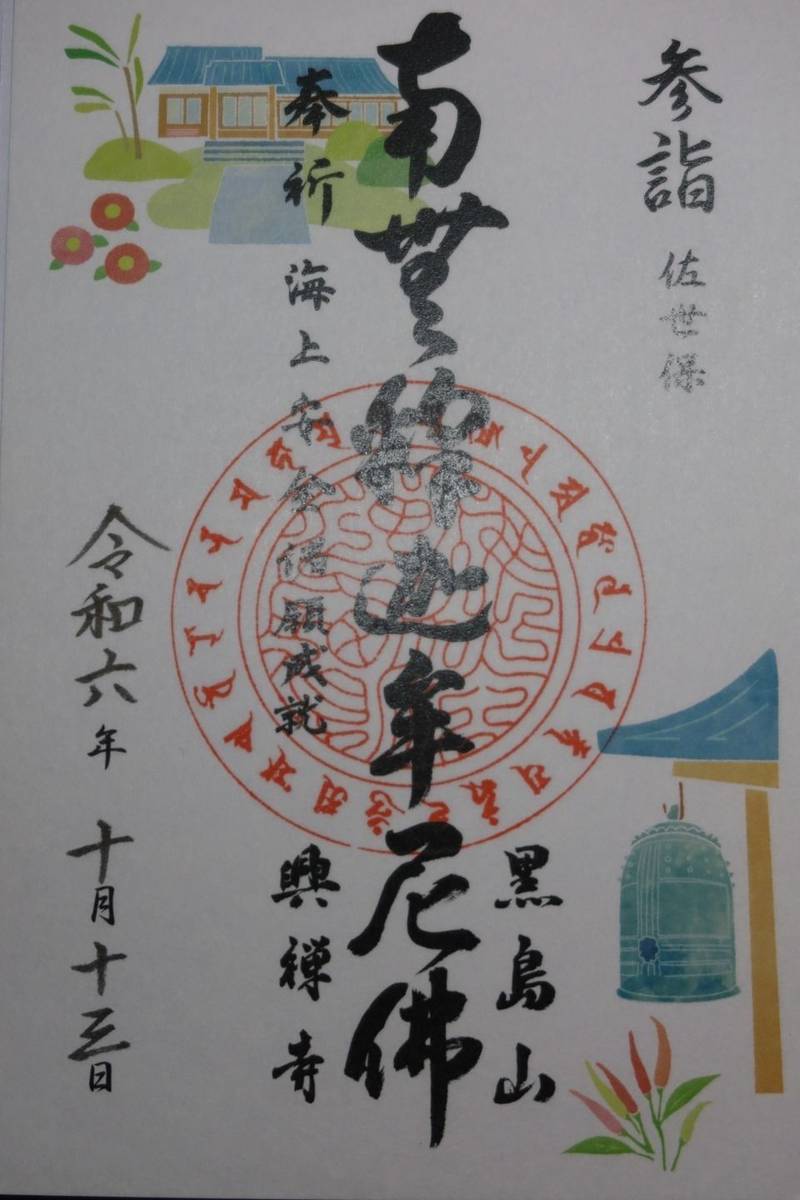 参詣 佐世保
黒島山
南無釋迦牟尼佛
奉祈 海上安全諸願成就
興禅寺
令和六年 十月十三日